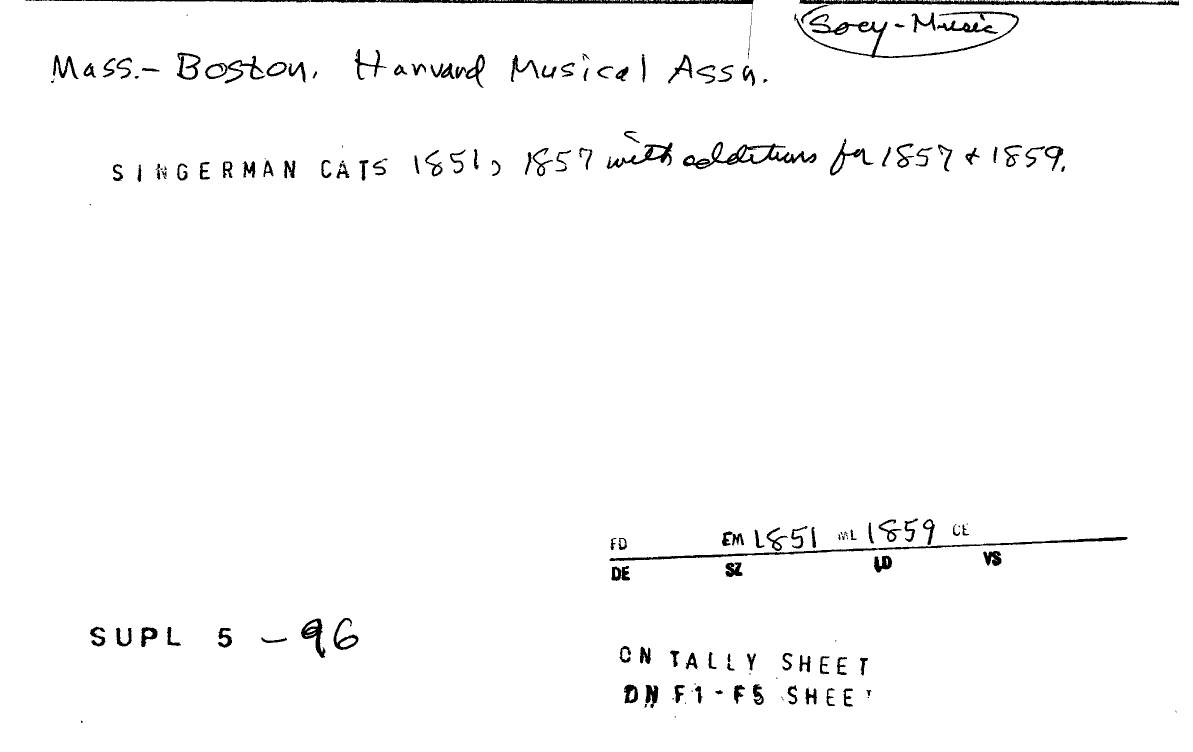 Socy-Music
Mass.- Boston. Harvard Musical Assn.
SINGERMAN CATS 1851, 1857 with additions for 1857 & 1859.
FD EM 1851 ML 1859 CE
DE SZ LD VS
SUPL 5 -96
ON TALLY SHEET
ON F1-F5 SHEET